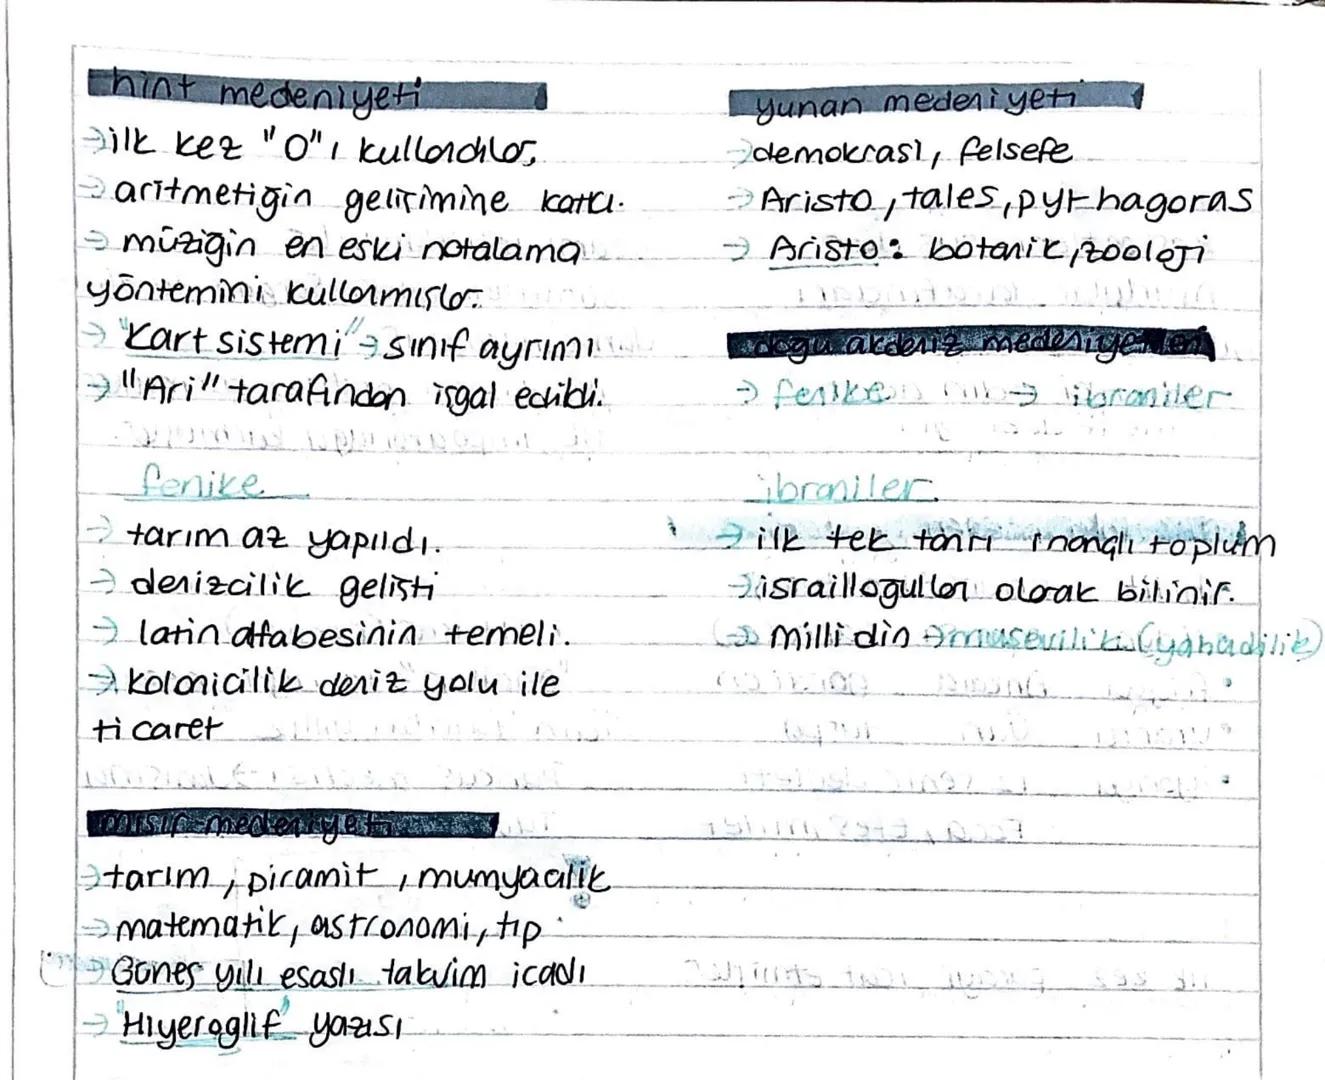 hint medeniyeti
→ilk kez "0"ı kullandılar.
→aritmetiğin gelişimine katkı.
→ müziğin en eski notalama
yöntemini kullanmışlar.
→ "Kart sistemi"→sınıf ayrımı
→ "Ari" tarafından işgal edildi.
yunan medeniyeti
→demokrasi, felsefe
→Aristo, tales, pythagoras
→ Aristo: botanik, zooloji
doğu akdeniz medeniyetleri
→ fenike → ibraniler
fenike
→ tarım az yapıldı.
→ denizcilik gelişti
→ latin alfabesinin temeli.
→ kolonicilik deniz yolu ile
ticaret
ibraniler.
→ ilk tek tanrı inançlı toplum
→israilloğulları olarak bilinir.
→ Milli din →musevilik (yahudilik)
mısır medeniyeti
→tarım, piramit, mumyacılık
→matematik, astronomi, tıp
→ Güneş yılı esaslı takvim icadı
→ "Hiyeroglif" yazısı